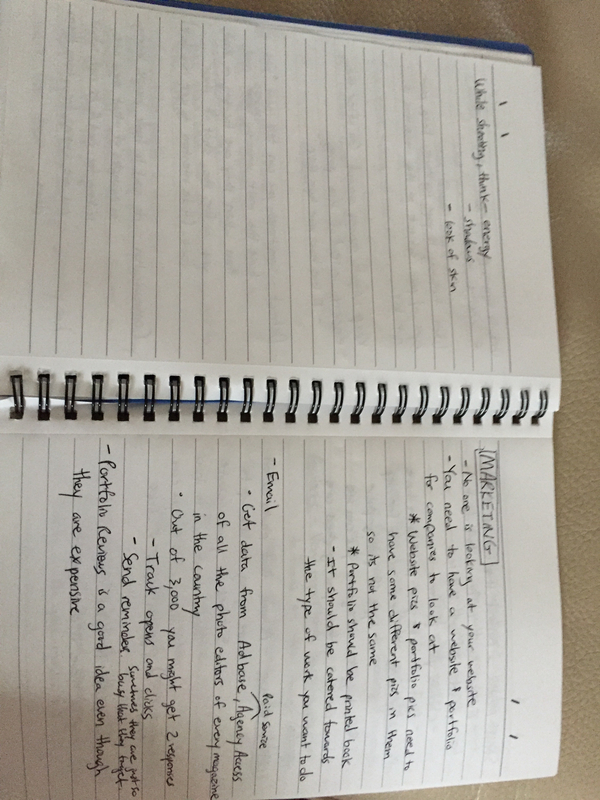 While shooting, think - energy
- shadows
- look of skin
MARKETING
- No one is looking at your website
- You need to have a website & portfolio
for companies to look at
* Website pics & portfolio pics need to
have some different pics in them
so its not the same
* Portfolio should be printed book
- It should be catered towards
the type of work you want to do
- Email
Paid source
• Get data from Adbase, Agency Access
of all the photo editors of every magazine
in the country
• Out of 3,000 you might get 2 responses
- Track opens and clicks
- Send reminder sometimes they are just so
busy that they forget
- Portfolio Reviews is a good idea even though
they are expensive